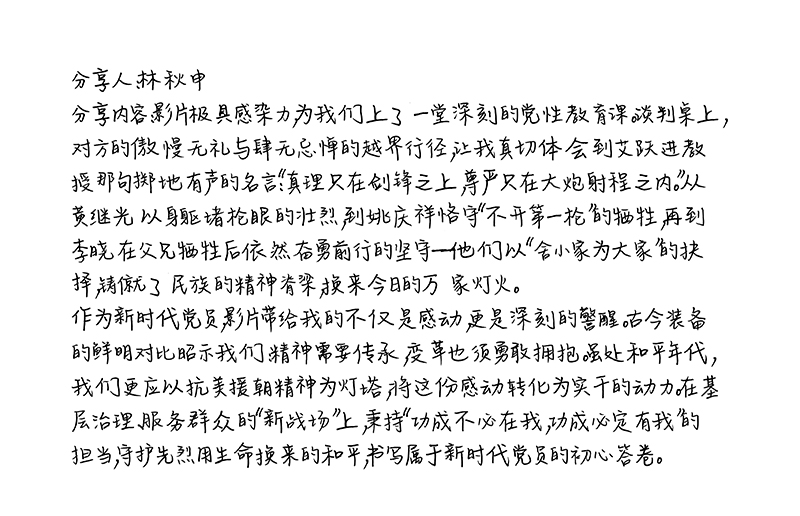 分享人:林秋申
分享内容:影片极具感染力,为我们上了一堂深刻的党性教育课。谈判桌上,
对方的傲慢无礼与肆无忌惮的越界行径,让我真切体会到艾跃进教
授那句掷地有声的名言:“真理只在剑锋之上,尊严只在大炮射程之内。”从
黄继光以身躯堵枪眼的壮烈,到姚庆祥恪守“不开第一枪”的牺牲,再到
李晓在父兄牺牲后依然奋勇前行的坚守——他们以“舍小家为大家”的抉
择,铸就了民族的精神脊梁,换来今日的万家灯火。
作为新时代党员,影片带给我的不仅是感动,更是深刻的警醒。古今装备
的鲜明对比昭示我们:精神需要传承,变革也须勇敢拥抱。虽处和平年代,
我们更应以抗美援朝精神为灯塔,将这份感动转化为实干的动力。在基
层治理、服务群众的“新战场”上,秉持“功成不必在我,功成必定有我”的
担当,守护先烈用生命换来的和平,书写属于新时代党员的初心答卷。